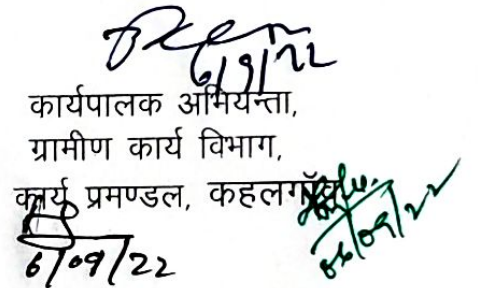 6/9/22
कार्यपालक अभियन्ता,
ग्रामीण कार्य विभाग,
कार्य प्रमण्डल, कहलगाँव
6/09/22
06/09/22